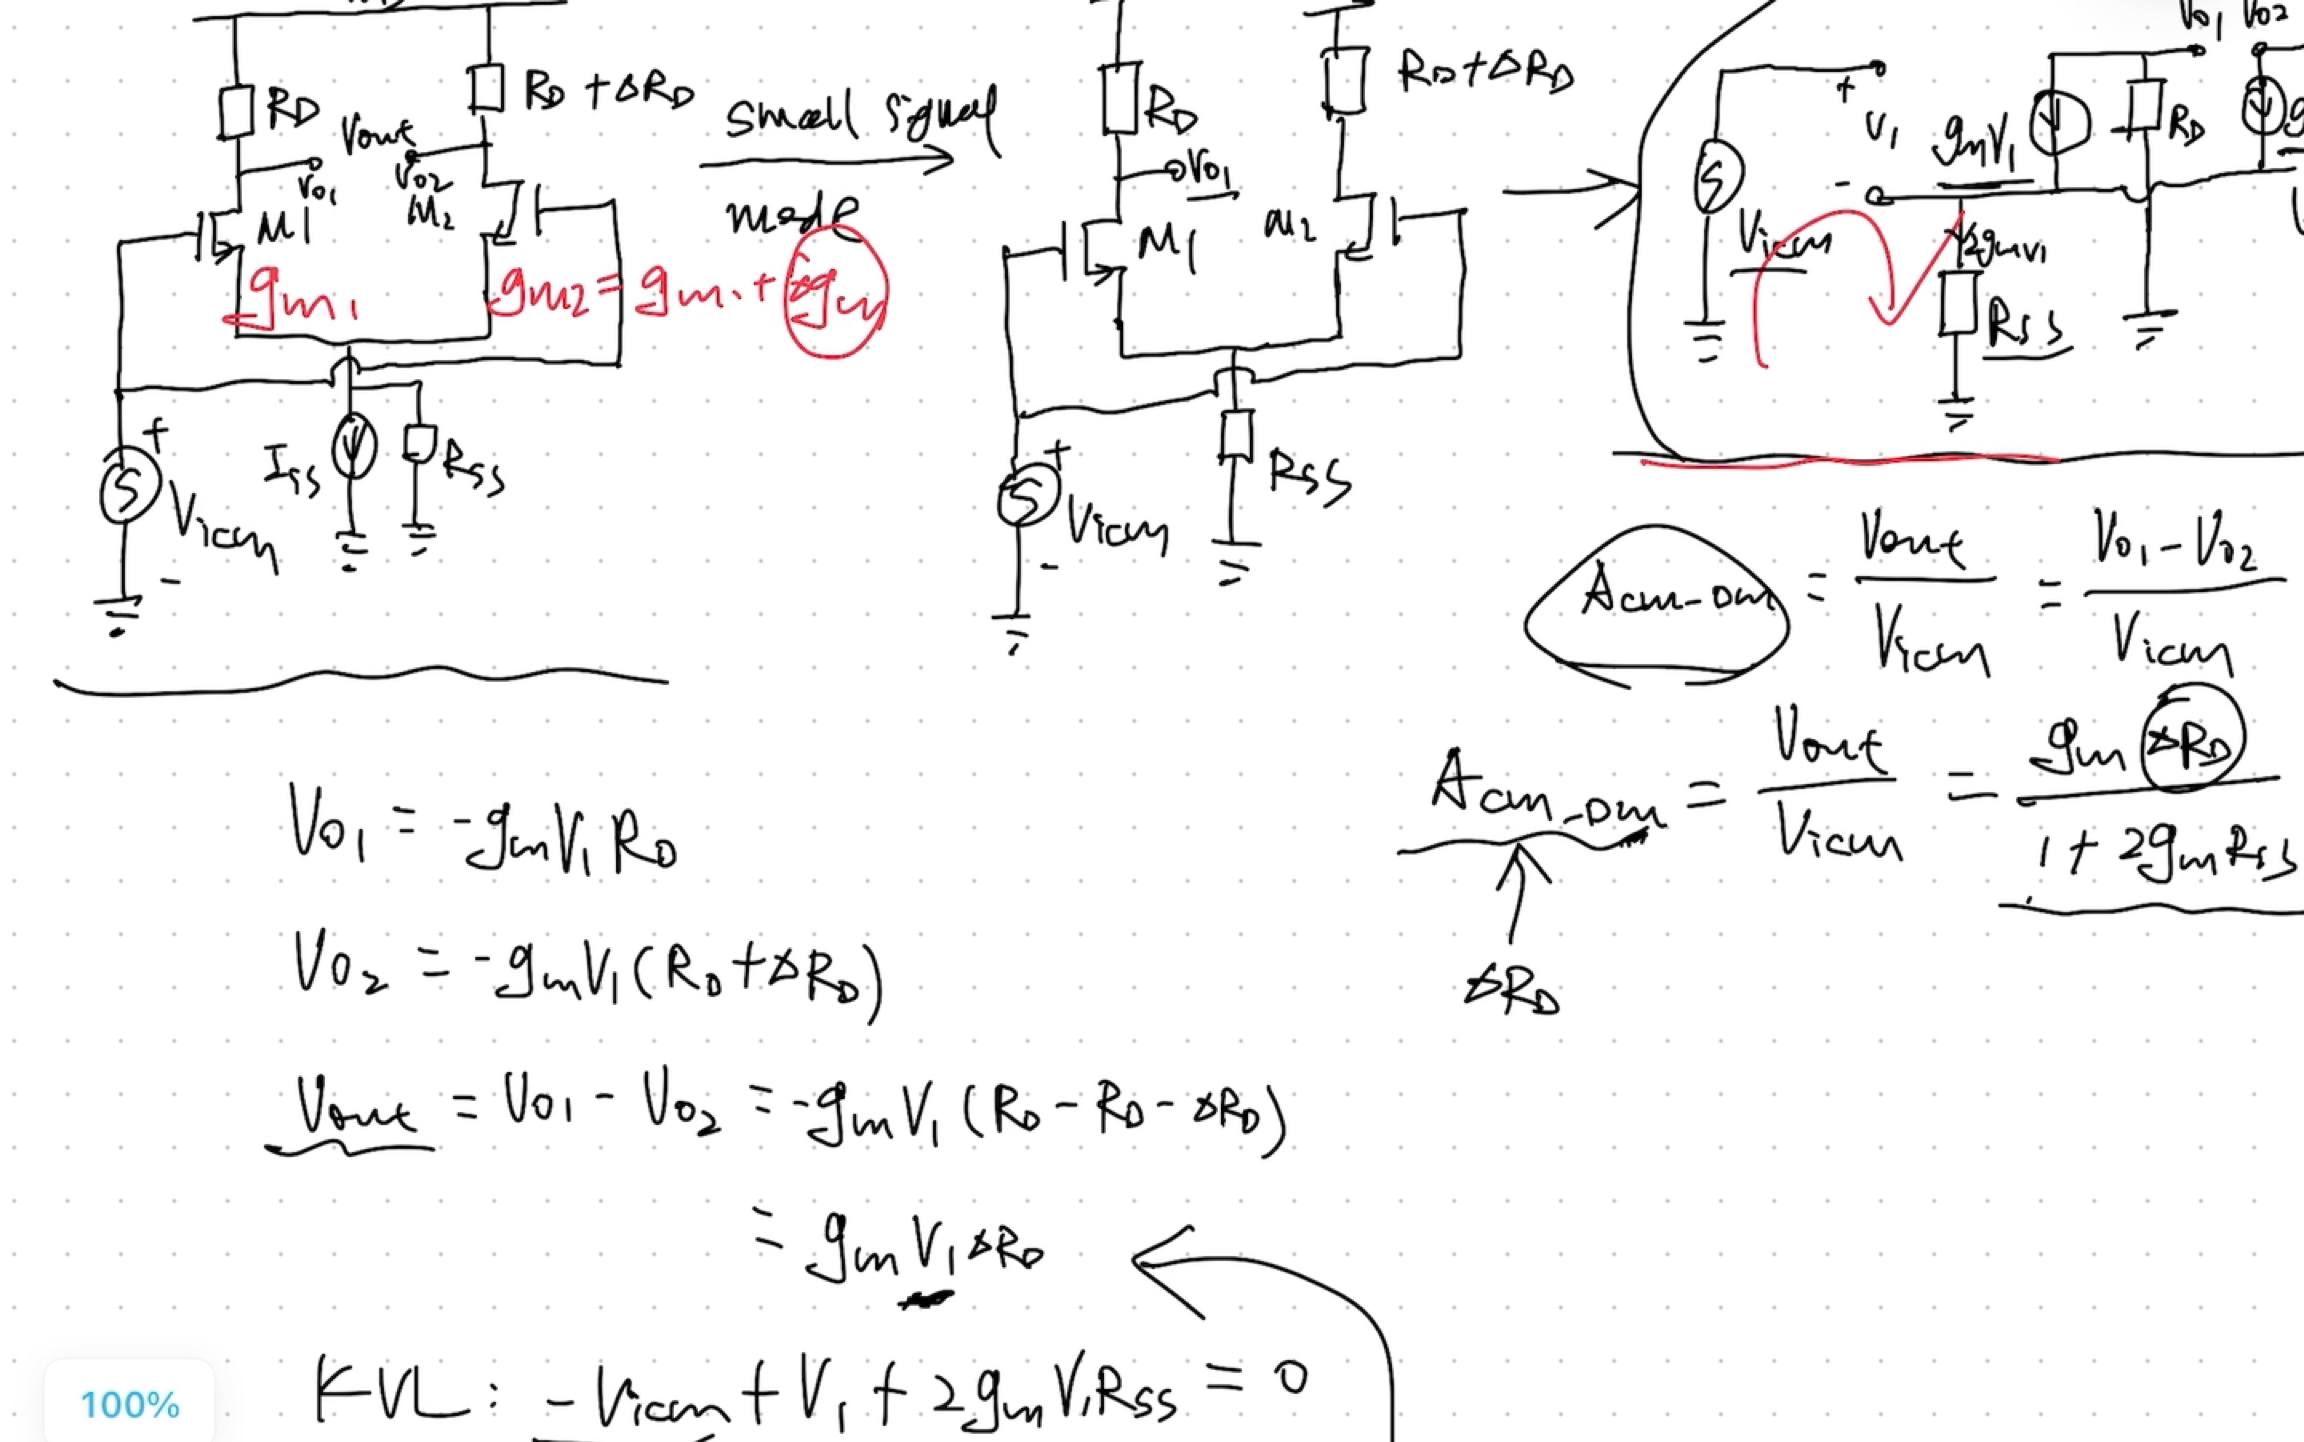 RD
RD + ΔRD
Vout
Vo1
Vo2
M1
M2
gm1
gm2 = gm1 + Δgm
ISS
RSS
+
Vicm
-
small signal
mode
RD
RD + ΔRD
Vo1
M1
M2
+
Vicm
-
RSS
Vo1 Vo2
+
V1
-
gmV1
RD
Vicm
2gmV1
RSS
Acm-DM = Vout / Vicm = Vo1 - Vo2 / Vicm
Acm-DM = Vout / Vicm = gm ΔRD / 1 + 2gmRSS
ΔRD
Vo1 = -gmV1RD
Vo2 = -gmV1(RD + ΔRD)
Vout = Vo1 - Vo2 = -gmV1(RD - RD - ΔRD)
= gmV1ΔRD
KVL: -Vicm + V1 + 2gmV1RSS = 0
100%